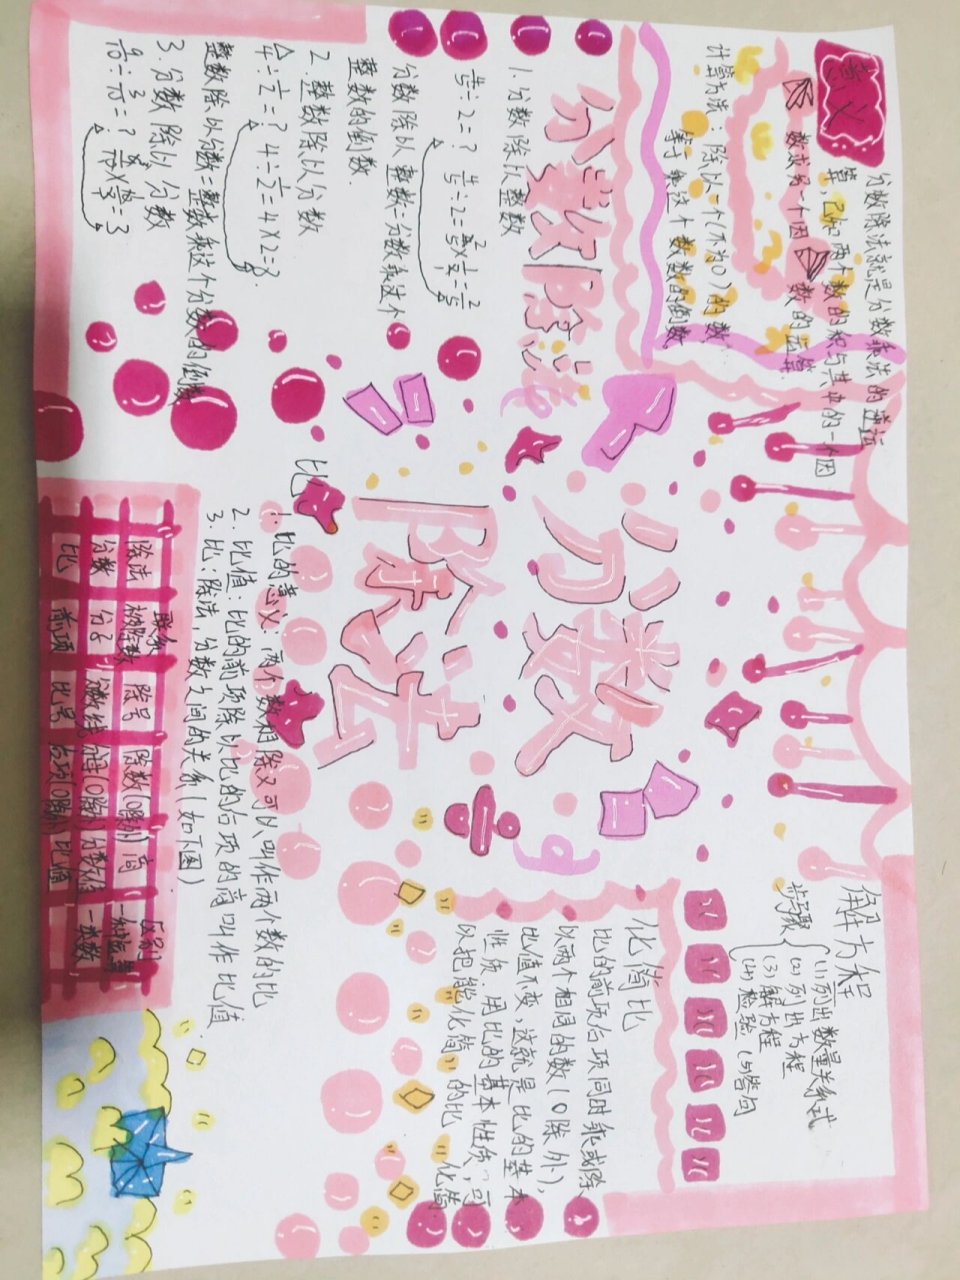 意义
分数除法就是分数乘法的逆运
算,已知两个数的积与其中的一个因
数求另一个因数的运算.
计算方法:除以一个(不为0)的数
等于乘这个数数的倒数
分数除法
1.分数除以整数
4/5÷2=? 4/5÷2=4/5×1/2=2/5
分数除以整数=分数乘这个
整数的倒数.
2.整数除以分数
4÷1/2=? 4÷1/2=4×2=8.
整数除以分数=整数乘这个分数的倒数
3.分数除以分数
9/10÷3/10=? 9/10×10/3=3
分数
除法
解方程
步骤
(1)列出数量关系式
(2)列出方程
(3)解方程
(4)检验 (5)答句
化简比
比的前项后项同时乘或除
以两个相同的数(0除外),
比值不变,这就是比的基本
性质.用比的基本性质,可
以把能化简的比 化简
比
1.比的意义:两个数相除又可以叫作两个数的比
2.比值:比的前项除以比的后项的商叫作比值
3.比:除法 分数之间的关系(如下图)
联系 区别
除法 被除数 除号 除数(0除外) 商 一种运算
分数 分子 分数线 分母(0除外) 分数值 一个数
比 前项 比号 后项(0除外) 比值